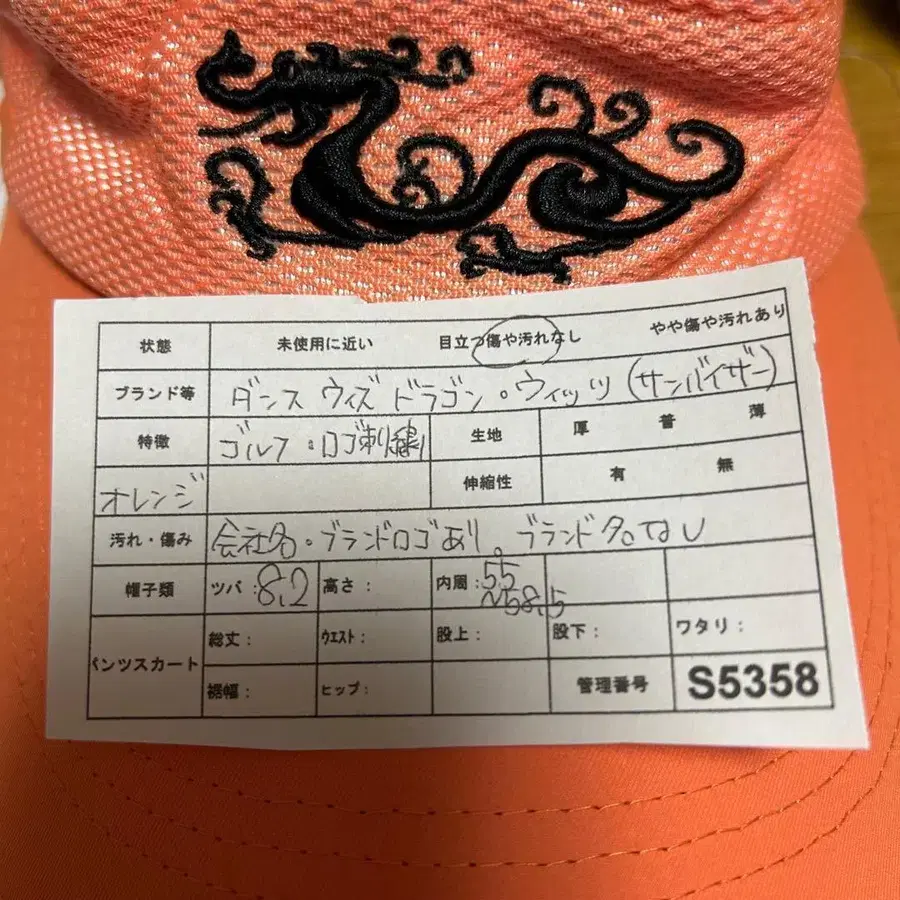 状態 未使用に近い 目立つ傷や汚れなし やや傷や汚れあり
ブランド等 ダンス ウィズ ドラゴン・ウィッツ (サンバイザー)
特徴 ゴルフ・ロゴ刺繍 生地 厚 普 薄
オレンジ 伸縮性 有 無
汚れ・傷み 会社名・ブランドロゴあり。ブランド名なし
帽子類 ツバ:8,2 高さ: 内周:55
〜58,5
パンツスカート 総丈: ウエスト: 股上: 股下: ワタリ:
裾幅: ヒップ: 管理番号 S5358